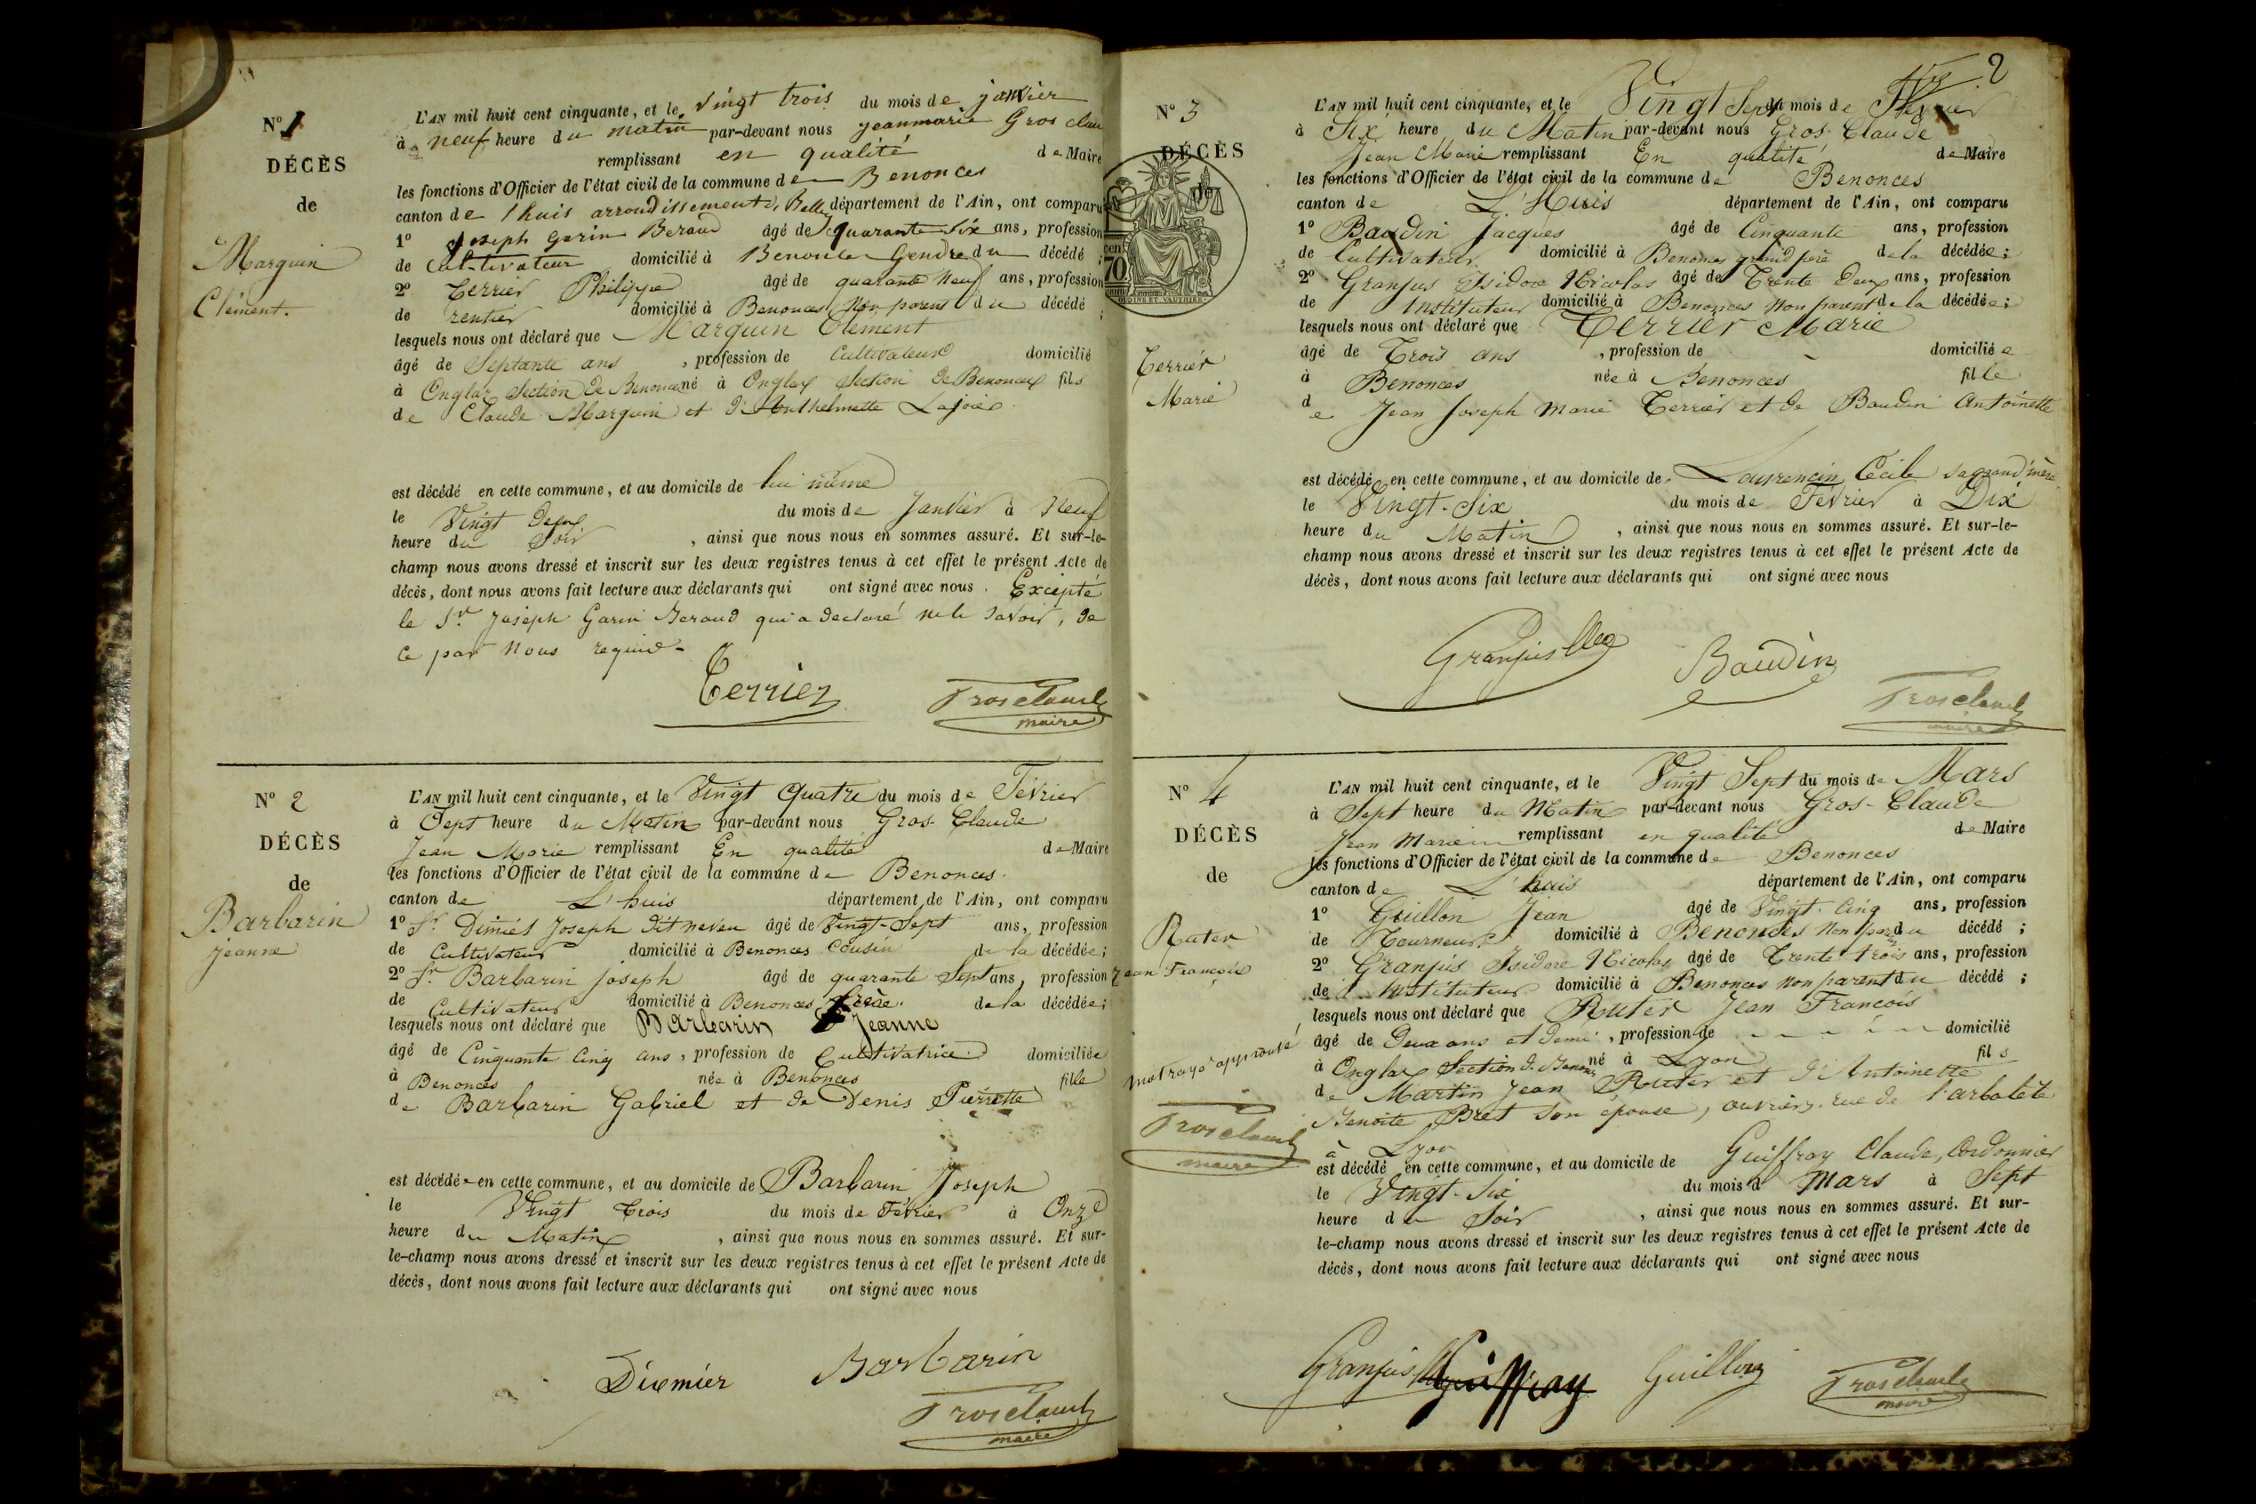 N° 1
DÉCÈS
de
Marguin
Clément.
L'AN mil huit cent cinquante, et le vingt trois du mois de janvier
à neuf heure du matin par-devant nous jeanmarie Gros claude
remplissant en qualité de Maire
les fonctions d'Officier de l'état civil de la commune de Benonces
canton de lhuis arrondissement de Belley département de l'Ain, ont comparu
1° Joseph Garin Beraud âgé de quarante Six ans, profession
de cultivateur domicilié à Benonces Gendre du décédé ;
2° Terrier Philippe âgé de quarante neuf ans, profession
de rentier domicilié à Benonces Non parens du décédé ;
lesquels nous ont déclaré que Marguin Clément
âgé de Septante ans , profession de Cultivateur domicilié
à Onglas Section de Benonces né à Onglas Section de Benonces fils
de Claude Marguin et d'Anthelmette Lajoie
est décédé en cette commune, et au domicile de lui même
le Vingt Deux du mois de Janvier à Neuf
heure du Soir , ainsi que nous nous en sommes assuré. Et sur-le-
champ nous avons dressé et inscrit sur les deux registres tenus à cet effet le présent Acte de
décès, dont nous avons fait lecture aux déclarants qui ont signé avec nous . Excepté
le Sr. Joseph Garin Beraud qui a declaré ne le savoir, de
ce par nous requis.
Terrier Grosclaude
maire
N° 2
DÉCÈS
de
Barbarin
jeanne
L'AN mil huit cent cinquante, et le Vingt Quatre du mois de Février
à Sept heure du Matin par-devant nous Gros-Claude
Jean Marie remplissant En qualité de Maire
les fonctions d'Officier de l'état civil de la commune de Benonces
canton de L'huis département de l'Ain, ont comparu
1° Sr. Dimiés Joseph dit neveu âgé de Vingt-Sept ans, profession
de Cultivateur domicilié à Benonces cousin de la décédée ;
2° Sr. Barbarin joseph âgé de quarante Sept ans, profession
de Cultivateur domicilié à Benonces frère de la décédée ;
lesquels nous ont déclaré que Barbarin Jeanne
âgé de Cinquante Cinq ans , profession de Cultivatrice domiciliée
à Benonces née à Benonces fille
de Barbarin Gabriel et de Denis Pierrette
est décédée en cette commune, et au domicile de Barbarin Joseph
le Vingt Trois du mois de Février à Onze
heure du Matin , ainsi que nous nous en sommes assuré. Et sur-
le-champ nous avons dressé et inscrit sur les deux registres tenus à cet effet le présent Acte de
décès, dont nous avons fait lecture aux déclarants qui ont signé avec nous
Diemiér Barbarin
Grosclaude
maire
2
N° 3
DÉCÈS
de
70
Terrier
Marie
L'AN mil huit cent cinquante, et le Vingt Sept du mois de Février
à Six heure du Matin par-devant nous Gros-Claude
Jean Marie remplissant En qualité de Maire
les fonctions d'Officier de l'état civil de la commune de Benonces
canton de L'Huis département de l'Ain, ont comparu
1° Baudin Jacques âgé de Cinquante ans, profession
de Cultivateur domicilié à Benonces grand père de la décédée ;
2° Granjus Isidore Nicolas âgé de Trente Deux ans, profession
de Instituteur domicilié à Benonces Non parent de la décédée ;
lesquels nous ont déclaré que Terrier Marie
âgé de Trois ans , profession de domiciliée
à Benonces née à Benonces fille
de Jean Joseph Marie Terrier et de Baudin Antoinette
est décédé en cette commune, et au domicile de Laurencin Cécile sa grand'mère
le Vingt-Six du mois de Février à Dix
heure du Matin , ainsi que nous nous en sommes assuré. Et sur-le-
champ nous avons dressé et inscrit sur les deux registres tenus à cet effet le présent Acte de
décès, dont nous avons fait lecture aux déclarants qui ont signé avec nous
Granjus Baudin
Grosclaude
maire
N° 4
DÉCÈS
de
Ruter
Jean François
mot rayé approuvé
Grosclaude
maire
L'AN mil huit cent cinquante, et le Vingt Sept du mois de Mars
à Sept heure du Matin par-devant nous Gros-Claude
Jean Marie remplissant en qualité de Maire
les fonctions d'Officier de l'état civil de la commune de Benonces
canton de L'huis département de l'Ain, ont comparu
1° Guillon Jean âgé de Vingt-Cinq ans, profession
de Tourneur domicilié à Benonces Non parent du décédé ;
2° Granjus Isidore Nicolas âgé de Trente trois ans, profession
de Instituteur domicilié à Benonces Non parent du décédé ;
lesquels nous ont déclaré que Ruter Jean François
âgé de Deux ans et demi , profession de domicilié
à Onglas Section de Benonces né à Lyon fils
de Martin Jean Ruter et d'Antoinette
Benoite Bret son épouse, ouvriers rue de l'arbalète
à Lyon
est décédé en cette commune, et au domicile de Guiffray Claude, Cordonnier
le Vingt-Six du mois d Mars à Sept
heure du Soir , ainsi que nous nous en sommes assuré. Et sur-
le-champ nous avons dressé et inscrit sur les deux registres tenus à cet effet le présent Acte de
décès, dont nous avons fait lecture aux déclarants qui ont signé avec nous
Granjus Guiffray Guillon Grosclaude
maire